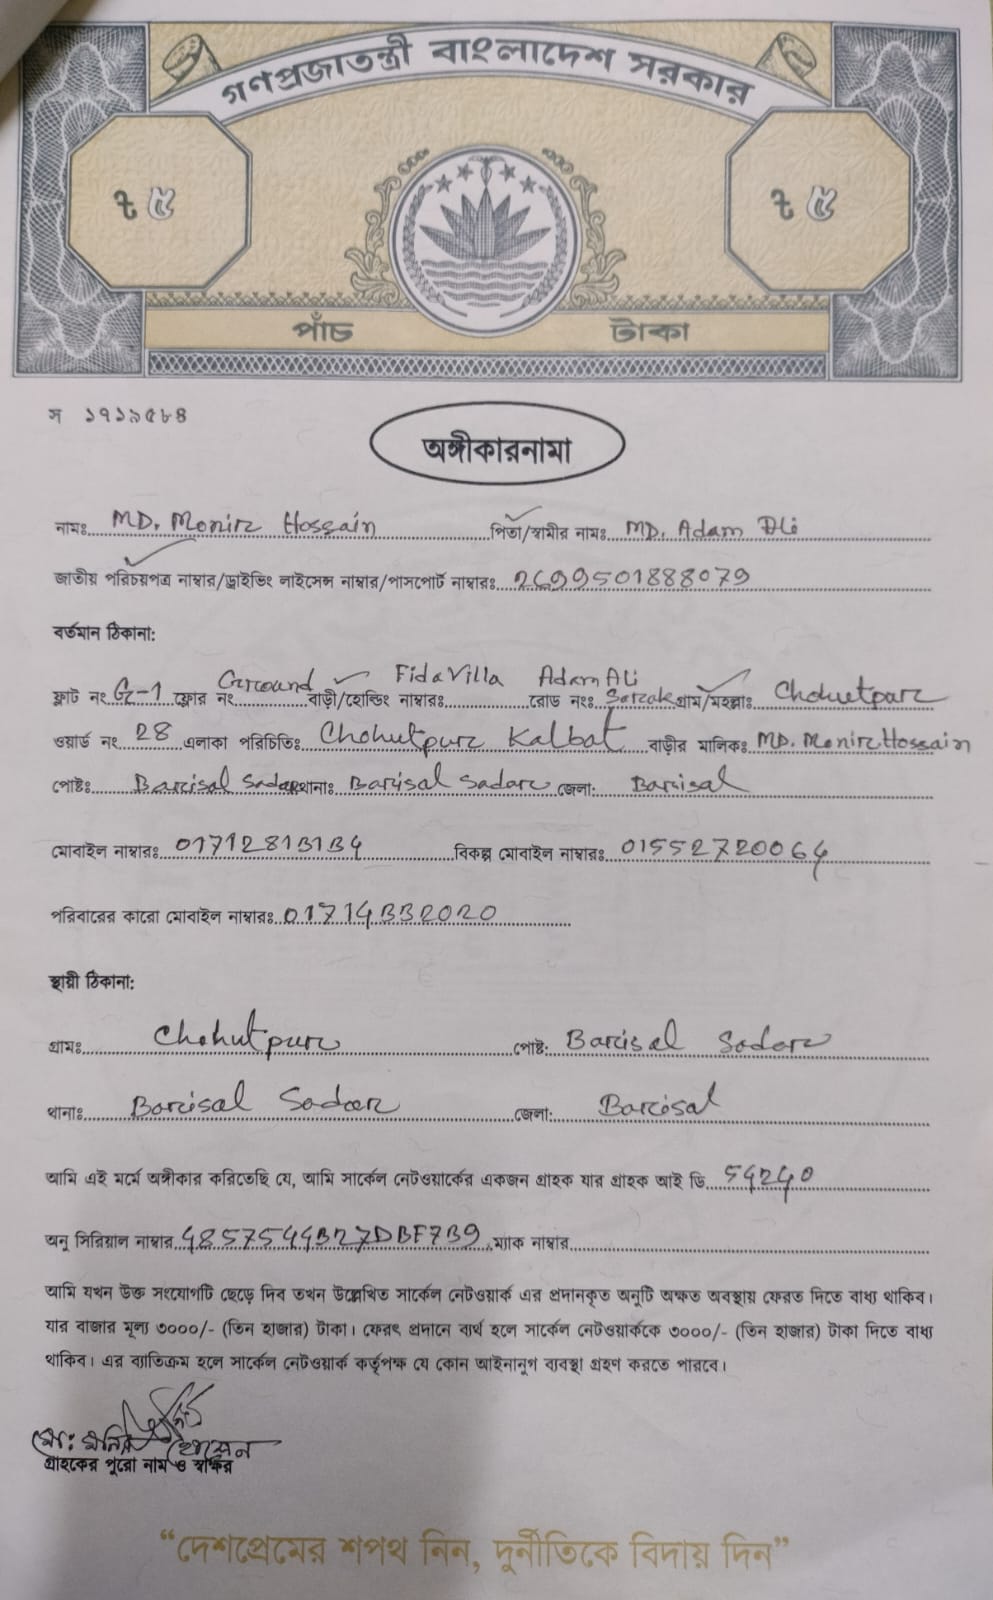 গণপ্রজাতন্ত্রী বাংলাদেশ সরকার
৳ ৫ ৳ ৫
পাঁচ টাকা
স ১৭১৯৫৮৪
অঙ্গীকারনামা
নামঃ MD. Monir Hossain পিতা/স্বামীর নামঃ MD. Adam Ali
জাতীয় পরিচয়পত্র নাম্বার/ড্রাইভিং লাইসেন্স নাম্বার/পাসপোর্ট নাম্বারঃ 2699501888079
বর্তমান ঠিকানা:
ফ্লাট নং G-1 ফ্লোর নং Ground বাড়ী/হোল্ডিং নাম্বারঃ Fida Villa রোড নংঃ Adam Ali Sarzak গ্রাম/মহল্লাঃ Chohutpur
ওয়ার্ড নং 28 এলাকা পরিচিতিঃ Chohutpur Kalbat বাড়ীর মালিকঃ MD. Monir Hossain
পোষ্টঃ Barisal Sadar থানাঃ Barisal Sadar জেলা: Barisal
মোবাইল নাম্বারঃ 01712813134 বিকল্প মোবাইল নাম্বারঃ 01552720064
পরিবারের কারো মোবাইল নাম্বারঃ 01714332020
স্থায়ী ঠিকানা:
গ্রামঃ Chohutpur পোষ্ট: Barisal Sadar
থানাঃ Barisal Sadar জেলা: Barisal
আমি এই মর্মে অঙ্গীকার করিতেছি যে, আমি সার্কেল নেটওয়ার্কের একজন গ্রাহক যার গ্রাহক আই ডি 54240
অনু সিরিয়াল নাম্বার 4857544327DBF7B9, ম্যাক নাম্বার
আমি যখন উক্ত সংযোগটি ছেড়ে দিব তখন উল্লেখিত সার্কেল নেটওয়ার্ক এর প্রদানকৃত অনুটি অক্ষত অবস্থায় ফেরত দিতে বাধ্য থাকিব।
যার বাজার মূল্য ৩০০০/- (তিন হাজার) টাকা। ফেরৎ প্রদানে ব্যর্থ হলে সার্কেল নেটওয়ার্ককে ৩০০০/- (তিন হাজার) টাকা দিতে বাধ্য
থাকিব। এর ব্যাতিক্রম হলে সার্কেল নেটওয়ার্ক কর্তৃপক্ষ যে কোন আইনানুগ ব্যবস্থা গ্রহণ করতে পারবে।
মো: মনির হোসেন
গ্রাহকের পুরো নাম ও স্বাক্ষর
“দেশপ্রেমের শপথ নিন, দুর্নীতিকে বিদায় দিন”